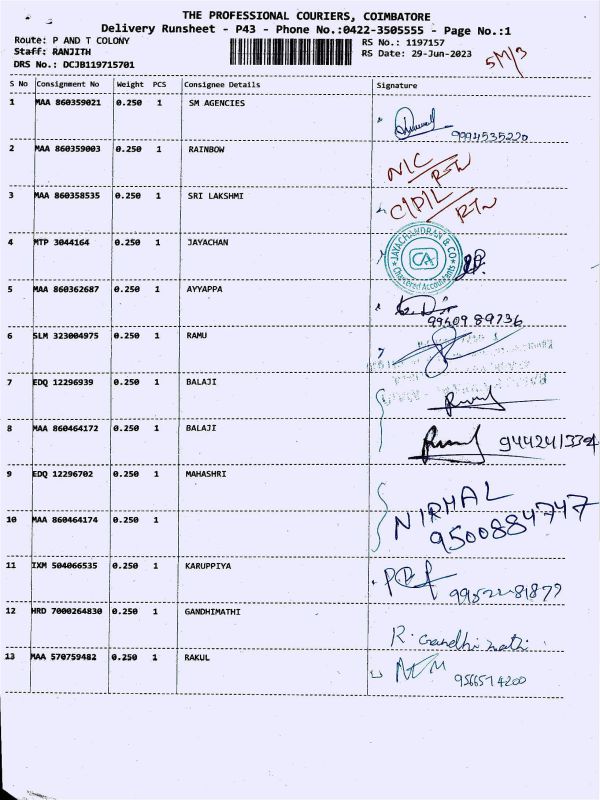 THE PROFESSIONAL COURIERS, COIMBATORE
Delivery Runsheet - P43 - Phone No.:0422-3505555 - Page No.:1
Route: P AND T COLONY RS No.: 1197157
Staff: RANJITH RS Date: 29-Jun-2023 5M/3
DRS No.: DCJB119715701
S No Consignment No Weight PCS Consignee Details Signature
1 MAA 860359021 0.250 1 SM AGENCIES
9994535220
2 MAA 860359003 0.250 1 RAINBOW N/C RTN
3 MAA 860358535 0.250 1 SRI LAKSHMI C/P/L RTN
4 MTP 3044164 0.250 1 JAYACHAN JAYACHANDRAN & CO CA Chartered Accountants
5 MAA 860362687 0.250 1 AYYAPPA
9940989736
6 SLM 323004975 0.250 1 RAMU
7 EDQ 12296939 0.250 1 BALAJI
8 MAA 860464172 0.250 1 BALAJI 9442413394
9 EDQ 12296702 0.250 1 MAHASHRI NIRMAL
10 MAA 860464174 0.250 1 9500884747
11 IXM 504066535 0.250 1 KARUPPIYA 99522-81879
12 HRD 7000264830 0.250 1 GANDHIMATHI R. Gandhi mathi
13 MAA 570759482 0.250 1 RAKUL 9566574200